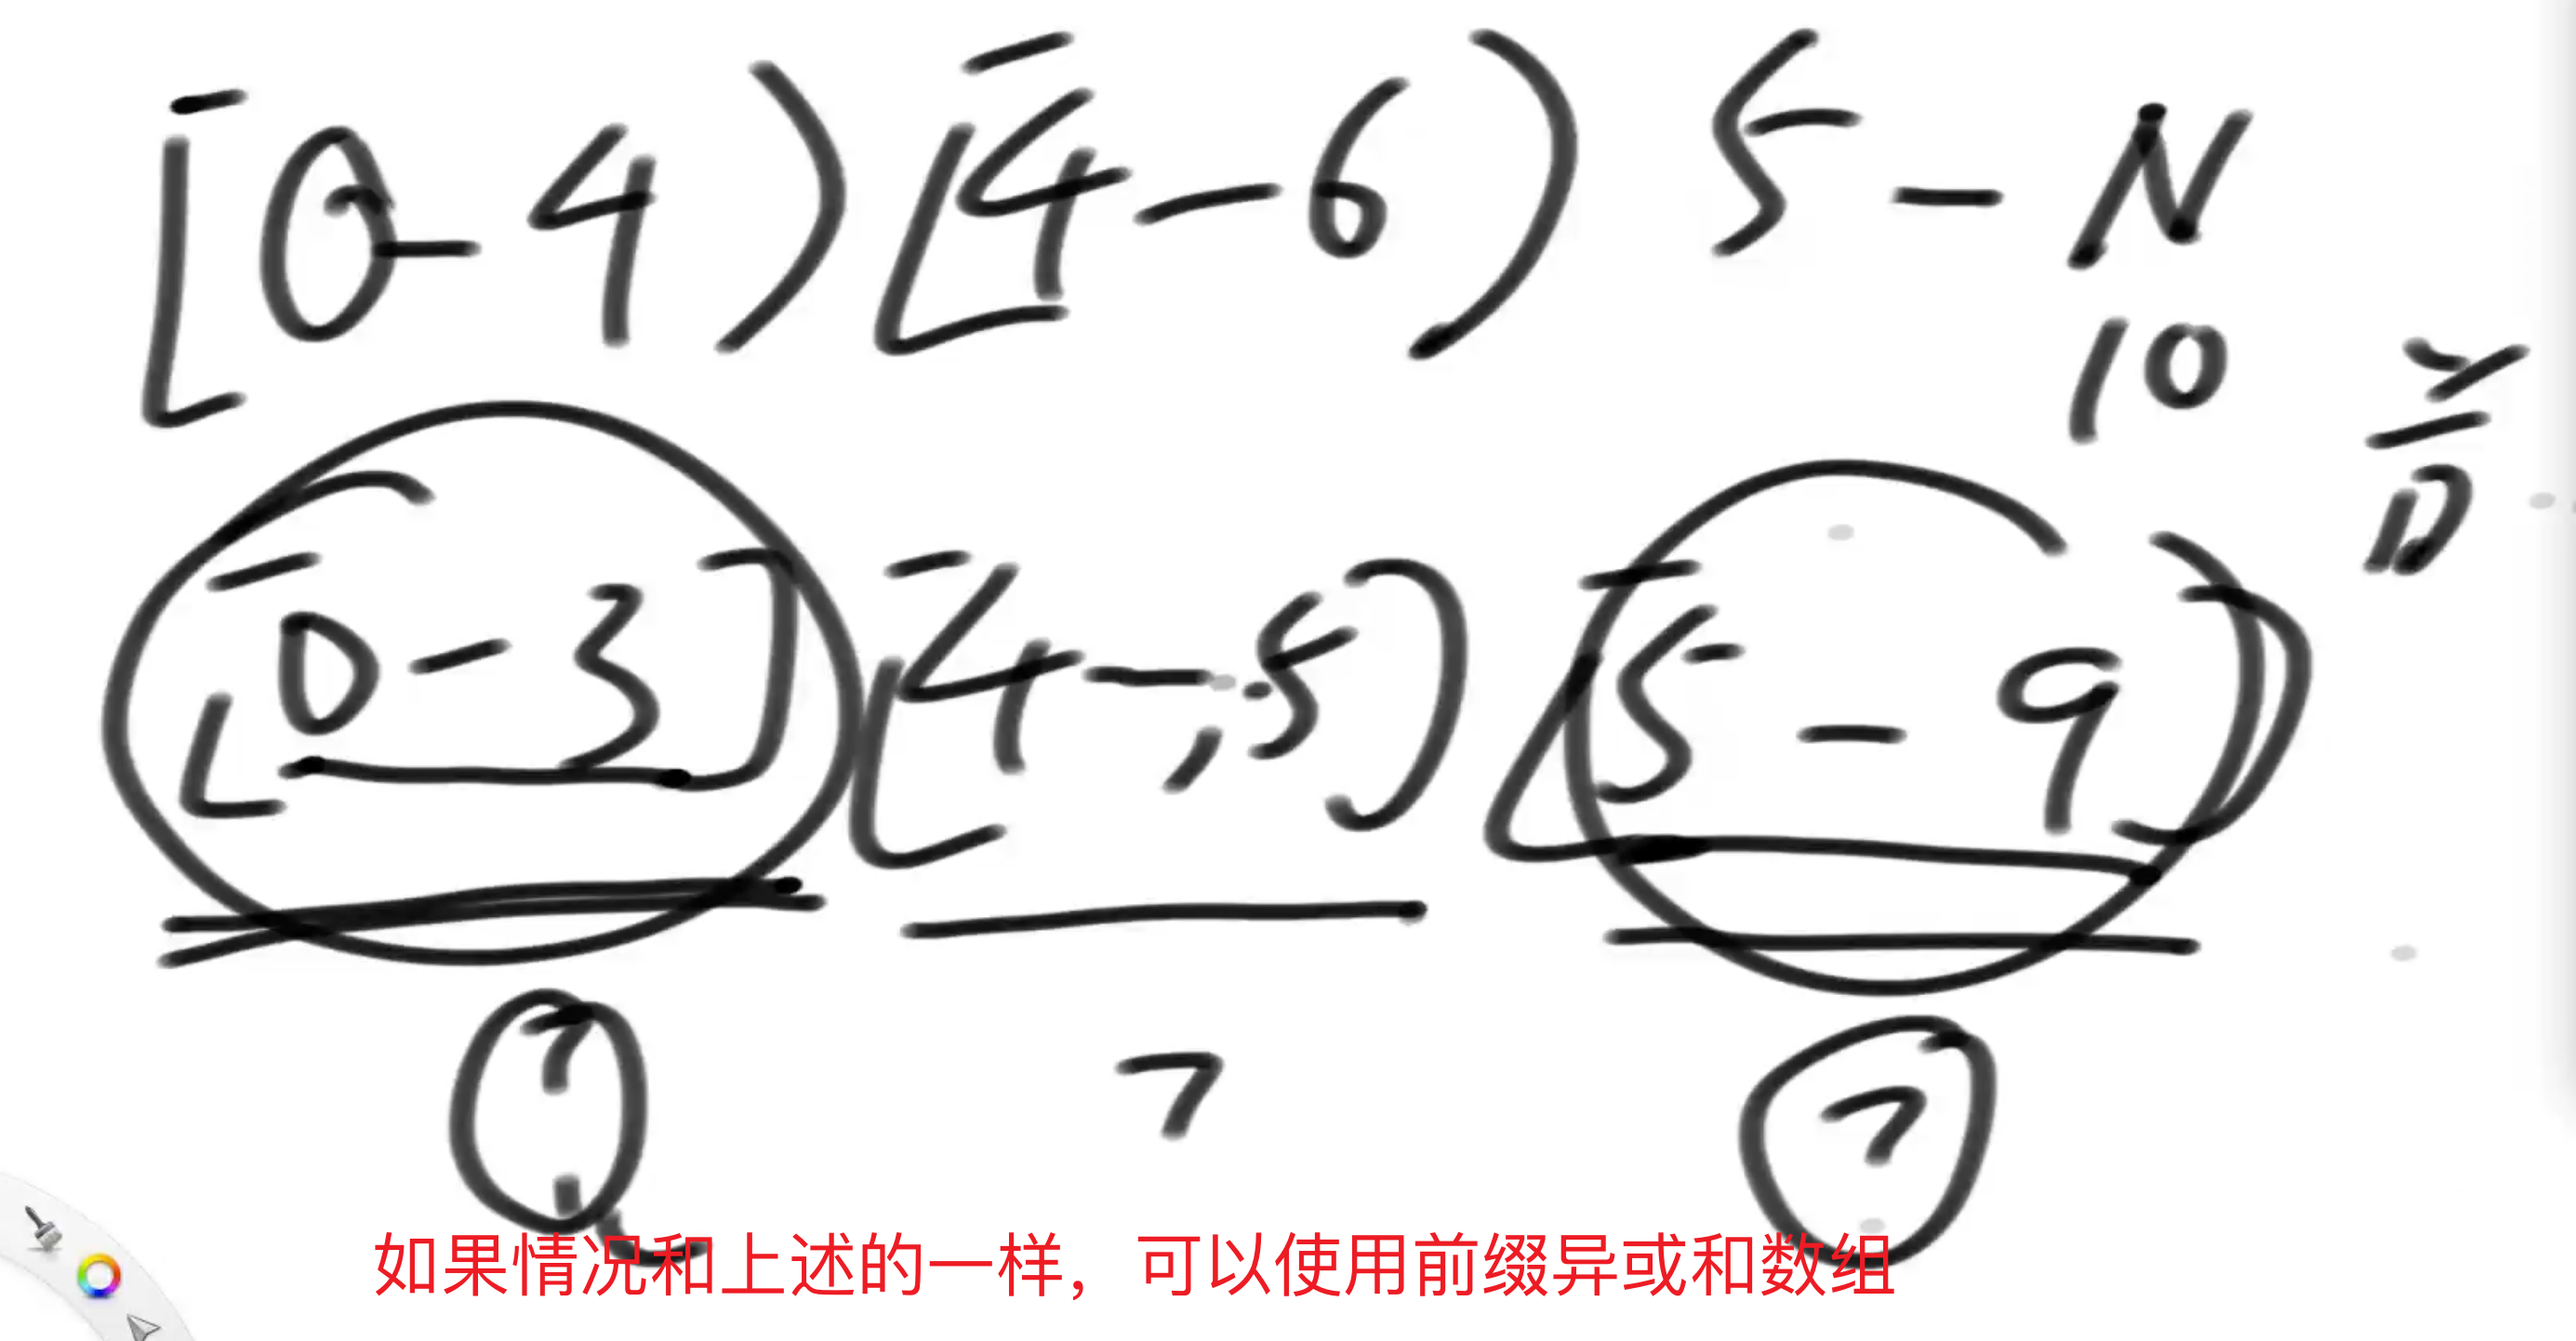 [0-4) [4-6) 5-N
10
[0-3] [4-5] [5-9]
? ? ?
如果情况和上述的一样，可以使用前缀异或和数组